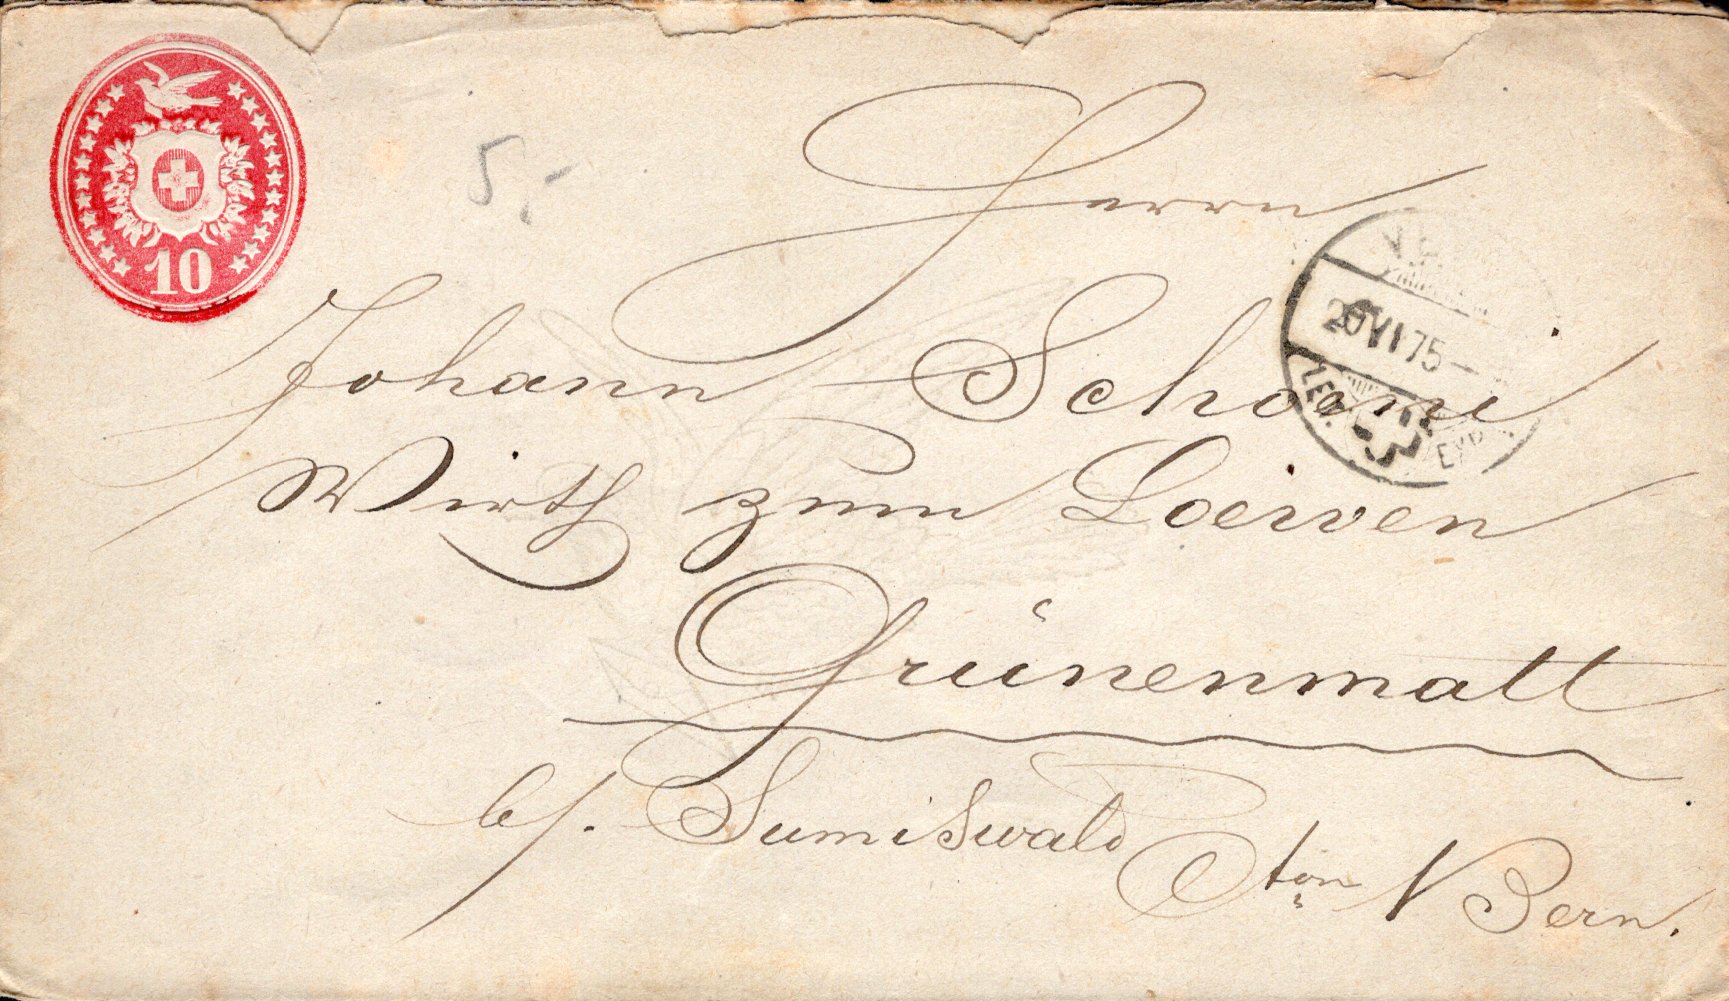 10
5.-
Herrn
Johann Schoni
Wirth zum Loewen
Grünenmatt
b/. Sumiswald Cton Bern.
20 VI 75 -
EXP